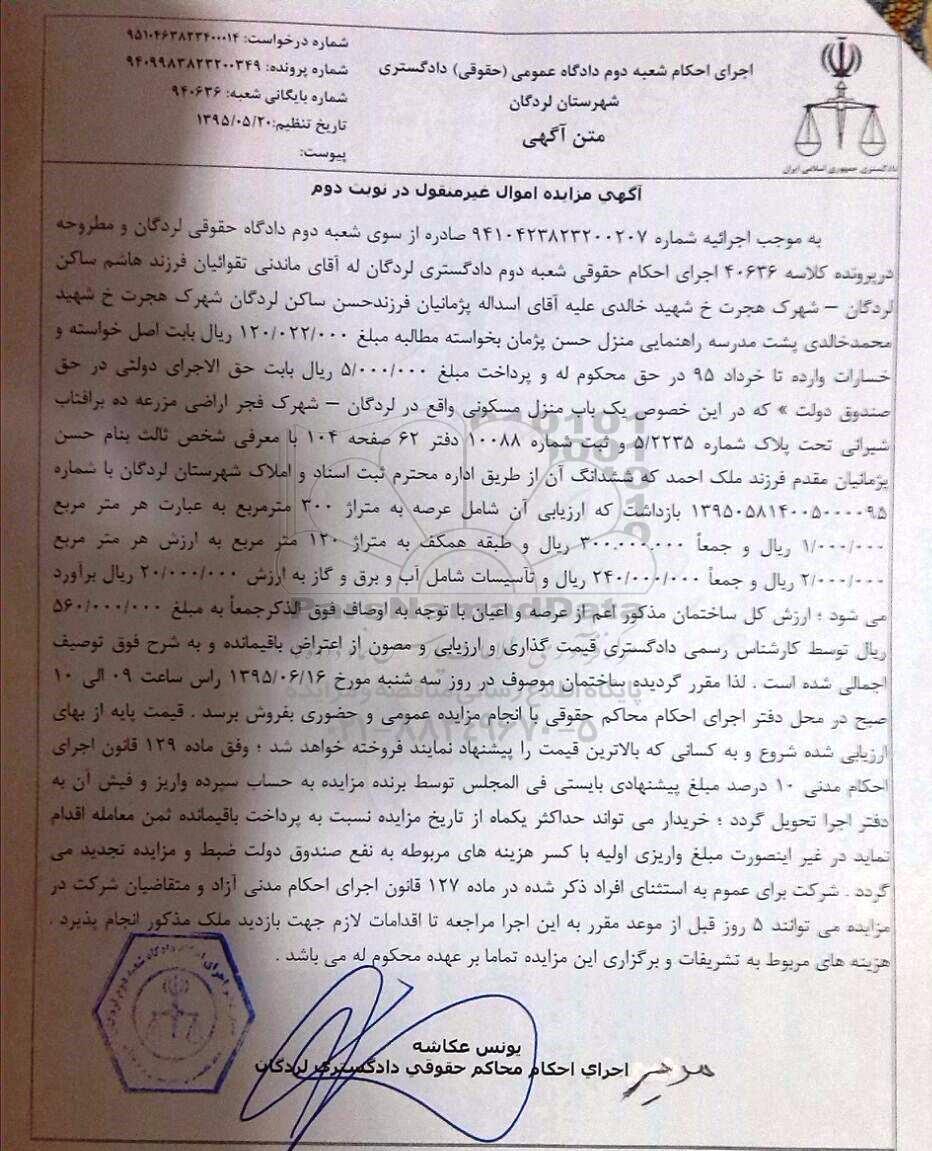 شماره درخواست: ۹۵۱۰۴۶۳۸۲۳۴۰۰۰۱۴
شماره پرونده: ۹۴۰۹۹۸۳۸۲۳۲۰۰۳۴۹
شماره بایگانی شعبه: ۹۴۰۶۳۶
تاریخ تنظیم: ۱۳۹۵/۰۵/۲۰
پیوست:
اجرای احکام شعبه دوم دادگاه عمومی (حقوقی) دادگستری
شهرستان لردگان
متن آگهی
دادگستری جمهوری اسلامی ایران
آگهی مزایده اموال غیرمنقول در نوبت دوم
به موجب اجرائیه شماره ۹۴۱۰۴۲۳۸۲۳۲۰۰۲۰۷ صادره از سوی شعبه دوم دادگاه حقوقی لردگان و مطروحه
درپرونده کلاسه ۴۰۶۳۶ اجرای احکام حقوقی شعبه دوم دادگستری لردگان له آقای ماندنی تقوائیان فرزند هاشم ساکن
لردگان – شهرک هجرت خ شهید خالدی علیه آقای اسداله پژمانیان فرزندحسن ساکن لردگان شهرک هجرت خ شهید
محمدخالدی پشت مدرسه راهنمایی منزل حسن پژمان بخواسته مطالبه مبلغ ۱۲۰/۰۲۲/۰۰۰ ریال بابت اصل خواسته و
خسارات وارده تا خرداد ۹۵ در حق محکوم له و پرداخت مبلغ ۵/۰۰۰/۰۰۰ ریال بابت حق الاجرای دولتی در حق
صندوق دولت » که در این خصوص یک باب منزل مسکونی واقع در لردگان – شهرک فجر اراضی مزرعه ده برافتاب
شیرانی تحت پلاک شماره ۵/۲۲۳۵ و ثبت شماره ۱۰۰۸۸ دفتر ۶۲ صفحه ۱۰۴ با معرفی شخص ثالث بنام حسن
پژمانیان مقدم فرزند ملک احمد که ششدانگ آن از طریق اداره محترم ثبت اسناد و املاک شهرستان لردگان با شماره
۱۳۹۵۰۵۸۱۴۰۰۵۰۰۰۰۹۵ بازداشت که ارزیابی آن شامل عرصه به متراژ ۳۰۰ مترمربع به عبارت هر متر مربع
۱/۰۰۰/۰۰۰ ریال و جمعاً ۳۰۰.۰۰۰.۰۰۰ ریال و طبقه همکف به متراژ ۱۲۰ متر مربع به ارزش هر متر مربع
۲/۰۰۰/۰۰۰ ریال و جمعاً ۲۴۰/۰۰۰/۰۰۰ ریال و تأسیسات شامل آب و برق و گاز به ارزش ۲۰/۰۰۰/۰۰۰ ریال برآورد
می شود ؛ ارزش کل ساختمان مذکور اعم از عرصه و اعیان با توجه به اوصاف فوق الذکرجمعاً به مبلغ ۵۶۰/۰۰۰/۰۰۰
ریال توسط کارشناس رسمی دادگستری قیمت گذاری و ارزیابی و مصون از اعتراض باقیمانده و به شرح فوق توصیف
اجمالی شده است . لذا مقرر گردیده ساختمان موصوف در روز سه شنبه مورخ ۱۳۹۵/۰۶/۱۶ راس ساعت ۰۹ الی ۱۰
صبح در محل دفتر اجرای احکام محاکم حقوقی با انجام مزایده عمومی و حضوری بفروش برسد . قیمت پایه از بهای
ارزیابی شده شروع و به کسانی که بالاترین قیمت را پیشنهاد نمایند فروخته خواهد شد ؛ وفق ماده ۱۲۹ قانون اجرای
احکام مدنی ۱۰ درصد مبلغ پیشنهادی بایستی فی المجلس توسط برنده مزایده به حساب سپرده واریز و فیش آن به
دفتر اجرا تحویل گردد ؛ خریدار می تواند حداکثر یکماه از تاریخ مزایده نسبت به پرداخت باقیمانده ثمن معامله اقدام
نماید در غیر اینصورت مبلغ واریزی اولیه با کسر هزینه های مربوطه به نفع صندوق دولت ضبط و مزایده تجدید می
گردد . شرکت برای عموم به استثنای افراد ذکر شده در ماده ۱۲۷ قانون اجرای احکام مدنی آزاد و متقاضیان شرکت در
مزایده می توانند ۵ روز قبل از موعد مقرر به این اجرا مراجعه تا اقدامات لازم جهت بازدید ملک مذکور انجام پذیرد .
هزینه های مربوط به تشریفات و برگزاری این مزایده تماما بر عهده محکوم له می باشد .
یونس عکاشه
اجرای احکام محاکم حقوقی دادگستری لردگان
ParsNamadData
پایگاه اطلاع رسانی مناقصه و مزایده
۰۲۱-۸۸۳۴۹۶۷۰-۵